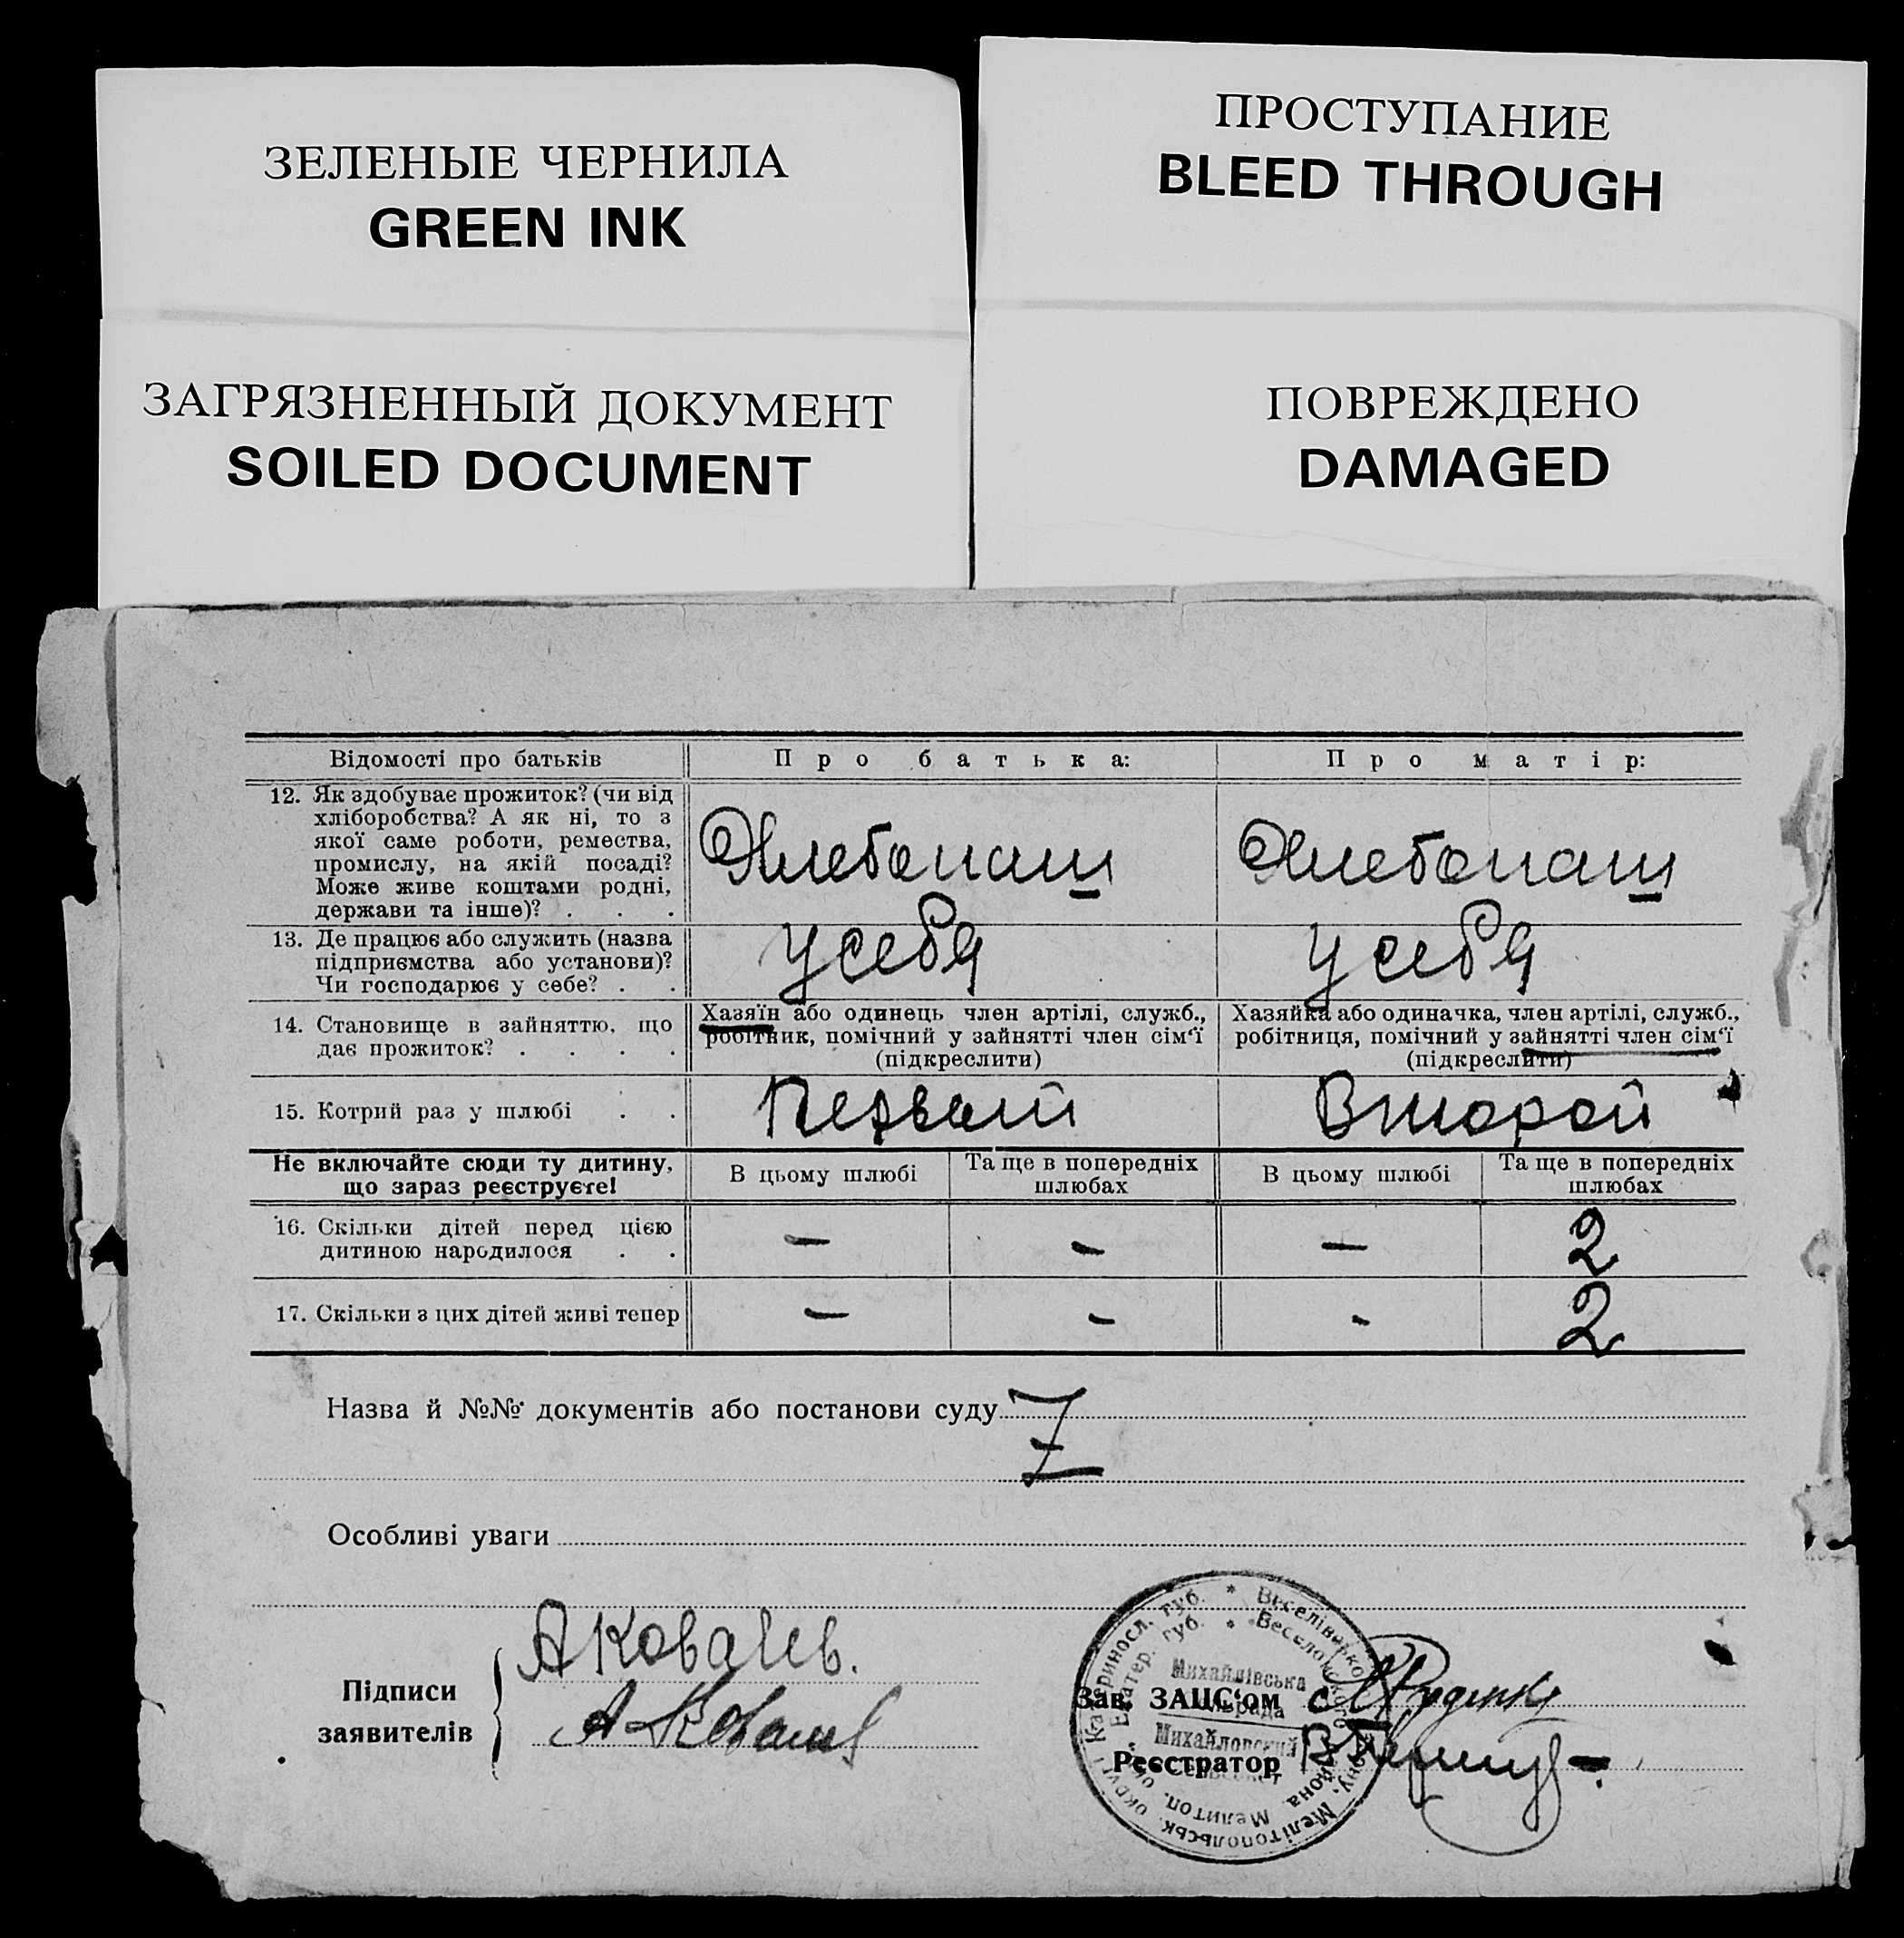 ЗЕЛЕНЫЕ ЧЕРНИЛА
GREEN INK
ПРОСТУПАНИЕ
BLEED THROUGH
ЗАГРЯЗНЕННЫЙ ДОКУМЕНТ
SOILED DOCUMENT
ПОВРЕЖДЕНО
DAMAGED
Відомості про батьків
Про батька:
Про матір:
12. Як здобуває прожиток? (чи від
хліборобства? А як ні, то з
якої саме роботи, ремества,
промислу, на якій посаді?
Може живе коштами родні,
держави та інше)? . . .
Хлебопаш
Хлебопаш
13. Де працює або служить (назва
підприємства або установи)?
Чи господарює у себе? . .
у себя
у себя
14. Становище в зайняттю, що
дає прожиток? . . . .
Хазяїн або одинець член артілі, служб.,
робітник, помічний у зайнятті член сім'ї
(підкреслити)
Хазяйка або одиначка, член артілі, служб.,
робітниця, помічний у зайнятті член сім'ї
(підкреслити)
15. Котрий раз у шлюбі . .
Первый
Второй
Не включайте сюди ту дитину,
що зараз реєструєте!
В цьому шлюбі
Та ще в попередніх
шлюбах
В цьому шлюбі
Та ще в попередніх
шлюбах
16. Скільки дітей перед цією
дитиною народилося . .
— - — 2
17. Скільки з цих дітей живі тепер
— - - 2
Назва й №№ документів або постанови суду
Особливі уваги
Підписи
заявителів
АКовалев.
А Ковалев
Катериносл. губ. * Веселівського
Мелітопольськ. округи
Екатер. губ. * Веселовского района Мелитоп. ок.
Михайлівська
сільрада
Михайловский
сельсовет
Зав. ЗАЦС'ом
Реєстратор